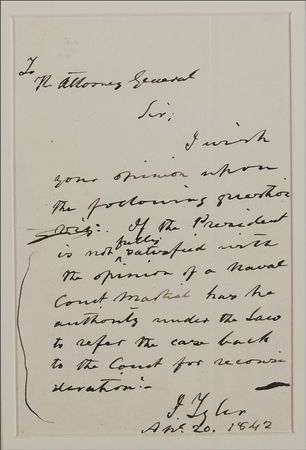 To
The Attorney General
Sir;
I wish
your opinion upon
the following question
viz: If the President
is not fully satisfied with
the opinion of a Naval
Court Martial has he
authority under the Law
to refer the case back
to the Court for reconsi
deration:-
J. Tyler
Apl. 20. 1842